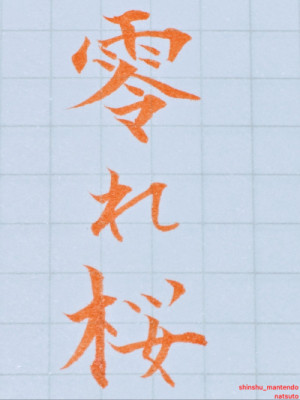 零れ桜
shinshu_mantendo
natsuto